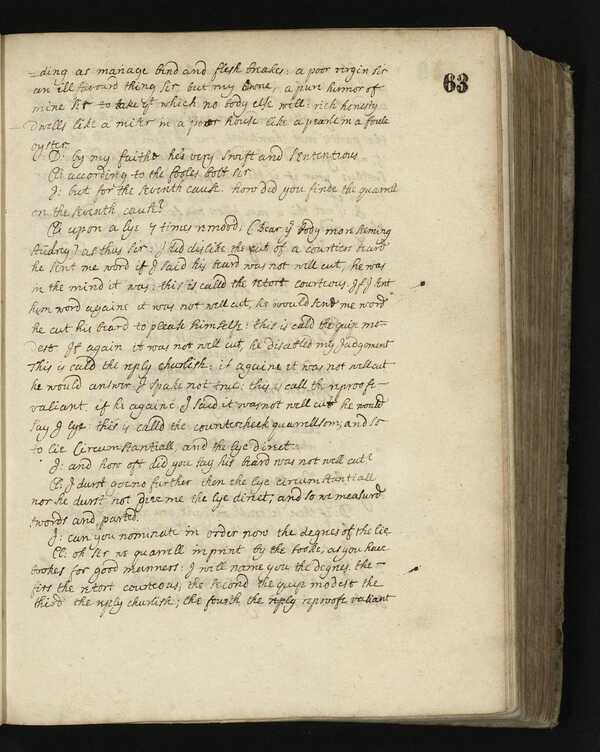 63
-ding as manage bind and flesh breakes: a poor virgin sir
an ill favord thing sir but my owne, a pure humor of
mine sir to take yt which no body else will: rich honesty
Dwells like a miser in a poor house like a pearle in a foule
oyster.
D: by my faithe he's very swift and sententious
Cl: according to the fooles bolt sir
J: but for the seventh cause. how did you finde the quarrell
on the seventh cause?
Cl: upon a lye 7 times remord, (bear yr body more seeming
Audrey) as thus sir: I did dyslike the cut of a courtiers beard
he sent me word if I said his beard was not well cut, he was
in the mind it was: this is called the retort courteous. If I sent
him word againe it was not well cut, he would send me word
he cut his beard to please himselfe: this is cald the quip mo-
dest If again it was not well cut, he disabled my Judgment
This is cald the reply churlish: if againe it was not well cut
he would answer I spake not true: this is call the reproofe
valiant. if he againe I said it was not well cut he would
say I lye: this is calld the countercheek quarrellsom; and so
to lie Circumstantiall, and the lye Direct.
J: and how oft did you say his beard was not well cut?
Cl: I durst go no further then the lye circumstantiall
nor he durst not give me the lye direct; and so we measurd
swords and parted.
J: can you nominate in order now the degrees of the lie
Cl: oh sir we quarrell in print by the booke, as you have
bookes for good manners: I will name you the degrees. the -
first the retort courteous; the second the quip modest the
third the reply churlish; the fourth the reply reproofe valiant